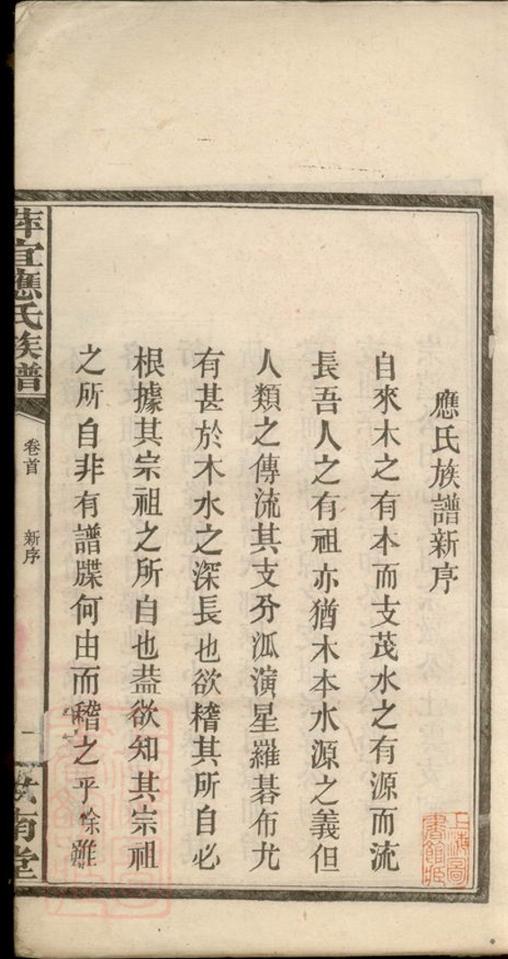 應氏族譜新序
自來木之有本而支茂水之有源而流
長吾人之有祖亦猶木本水源之義但
人類之傳流其支分泒演星羅碁布尤
有甚於木水之深長也欲稽其所自必
根據其宗祖之所自也葢欲知其宗祖
之所自非有譜牒何由而稽之乎馀雖
萍宜應氏族譜
卷首
新序
一
南堂
上海圖
書館藏